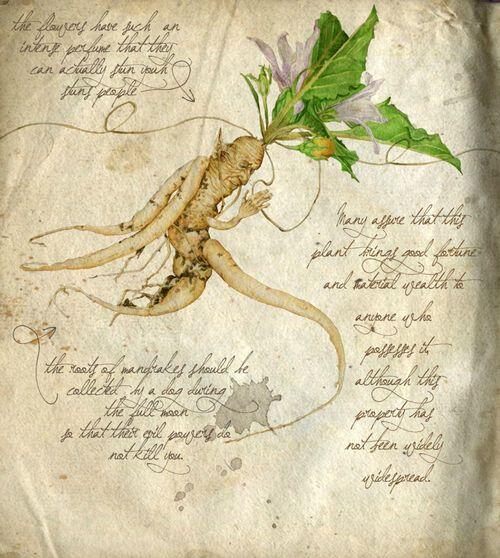 the flowers have such an
intense perfume that they
can actually stun youh
stuns people
Many assure that this
plant brings good fortune
and material wealth to
anyone who
possesses it,
although this
property has
not been widely
widespread.
the roots of mandrakes should be
collected by a dog during
the full moon
so that their evil powers do
not kill you.